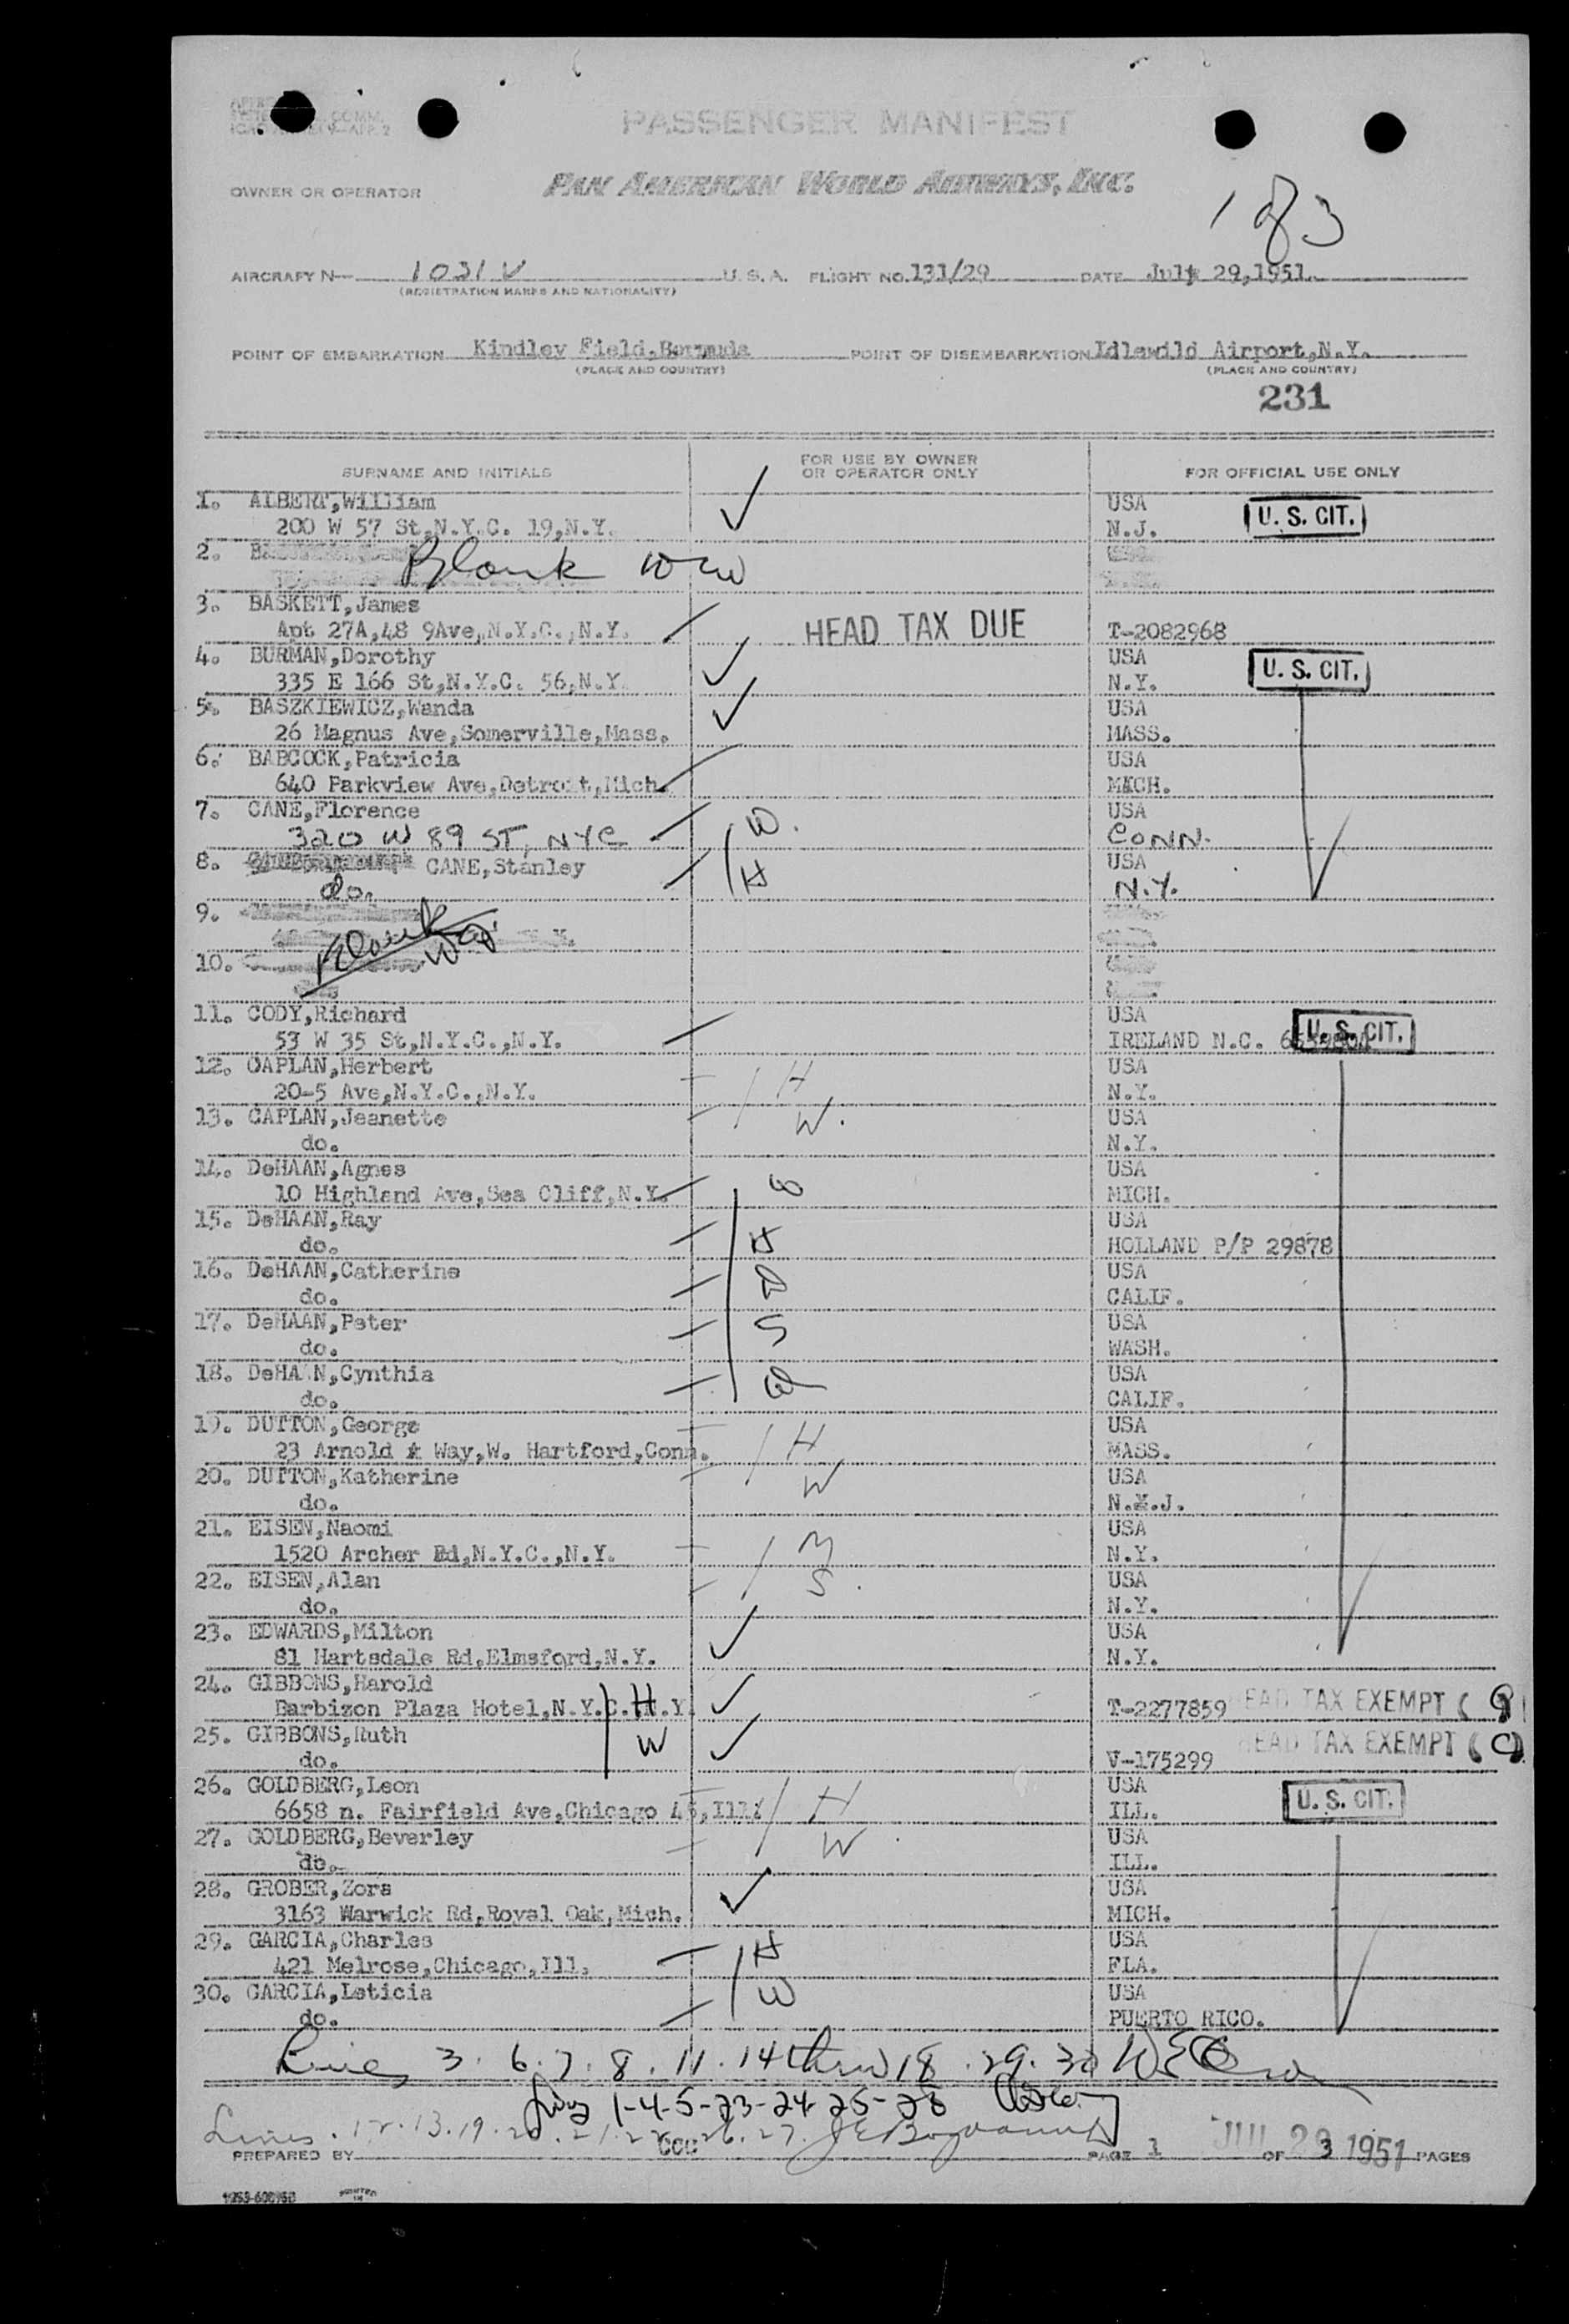 PASSENGER MANIFEST
OWNER OR OPERATOR PAN AMERICAN WORLD AIRWAYS, INC.
1 of 3
AIRCRAFT N— 1031V U. S. A. FLIGHT NO. 131/29 DATE July 29,1951.
(REGISTRATION MARKS AND NATIONALITY)
POINT OF EMBARKATION Kindley Field,Bermuda POINT OF DISEMBARKATION Idlewild Airport,N.Y.
(PLACE AND COUNTRY) (PLACE AND COUNTRY)
231
SURNAME AND INITIALS FOR USE BY OWNER OR OPERATOR ONLY FOR OFFICIAL USE ONLY
1. ALBERT,William USA
200 W 57 St,N.Y.C. 19,N.Y. N.J. U. S. CIT.
2. Blank
3. BASKETT,James
Apt 27A,48 9Ave,N.Y.C.,N.Y. HEAD TAX DUE T-2082968
4. BURMAN,Dorothy USA
335 E 166 St,N.Y.C. 56,N.Y. N.Y. U. S. CIT.
5. BASZKIEWICZ,Wanda USA
26 Magnus Ave,Somerville,Mass. MASS.
6. BABCOCK,Patricia USA
640 Parkview Ave,Detroit,Mich. MICH.
7. CANE,Florence USA
320 W 89 ST, NYC W. CONN.
8. CANE,Stanley USA
do. H N.Y.
9. Blank
10.
11. CODY,Richard USA
53 W 35 St,N.Y.C.,N.Y. IRELAND N.C. U. S. CIT.
12. CAPLAN,Herbert H USA
20-5 Ave,N.Y.C.,N.Y. N.Y.
13. CAPLAN,Jeanette W. USA
do. N.Y.
14. DeHAAN,Agnes USA
10 Highland Ave,Sea Cliff,N.Y. W MICH.
15. DeHAAN,Ray USA
do. H HOLLAND P/P 29878
16. DeHAAN,Catherine USA
do. D CALIF.
17. DeHAAN,Peter USA
do. S WASH.
18. DeHAAN,Cynthia USA
do. D CALIF.
19. DUTTON,George H USA
23 Arnold & Way,W. Hartford,Conn. MASS.
20. DUTTON,Katherine W USA
do. N.Y.J.
21. EISEN,Naomi USA
1520 Archer Rd,N.Y.C.,N.Y. M N.Y.
22. EISEN,Alan S. USA
do. N.Y.
23. EDWARDS,Milton USA
81 Hartsdale Rd,Elmsford,N.Y. N.Y.
24. GIBBONS,Harold
Barbizon Plaza Hotel,N.Y.C. N.Y. H T-2277859 HEAD TAX EXEMPT
25. GIBBONS,Ruth W
do. V-175299 HEAD TAX EXEMPT (C)
26. GOLDBERG,Leon USA
6658 n. Fairfield Ave,Chicago 45,Ill. H ILL. U. S. CIT.
27. GOLDBERG,Beverley W. USA
do. ILL.
28. GROBER,Zora USA
3163 Warwick Rd,Royal Oak,Mich. MICH.
29. GARCIA,Charles H USA
421 Melrose,Chicago,Ill. FLA.
30. GARCIA,Leticia W USA
do. PUERTO RICO.
Lines 3. 6. 7. 8. 11. 14 thru 18. 29. 30
Lines 1-4-5-23-24-25-28
Lines. 12.13.19.20.21.22.26.27.
PREPARED BY CCC PAGE 1 OF 3 PAGES
JUL 29 1951